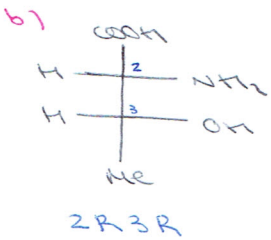 b)
COOH
2
H NH2
3
H OH
Me
2R 3R